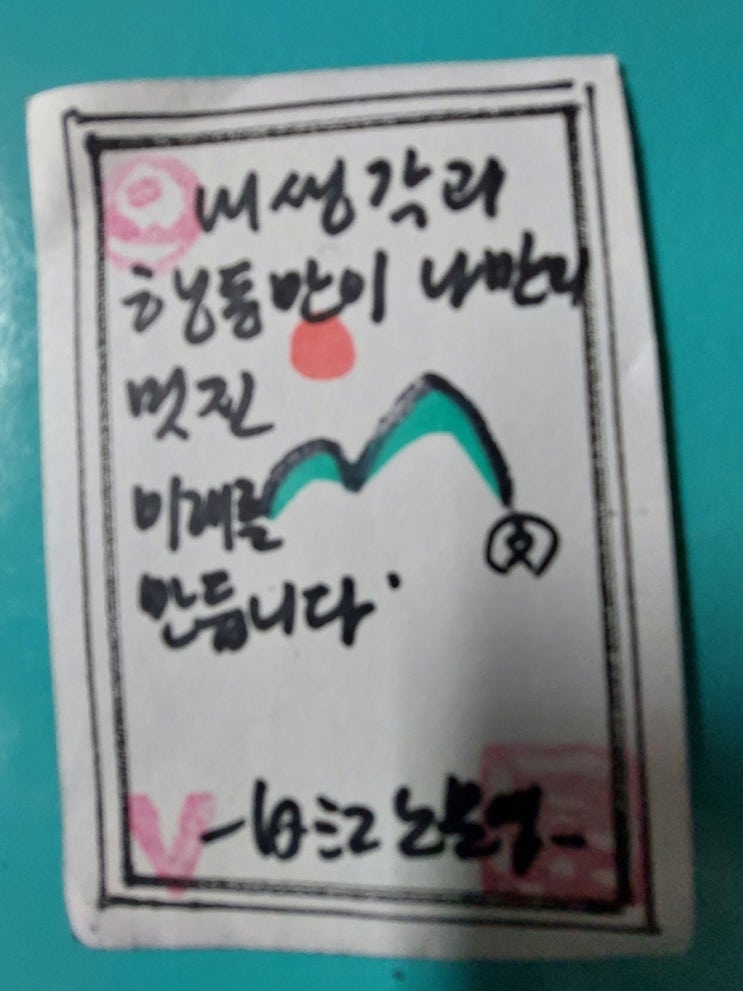 내 생각과
행동만이 나만의
멋진
미래를
만듭니다.
文